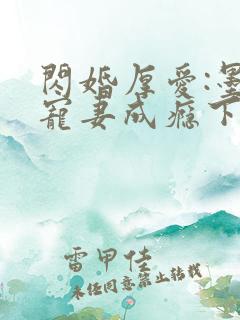 閃婚厚愛:墨
寵妻成癮下
雷甲佳
未經同意禁止轉載